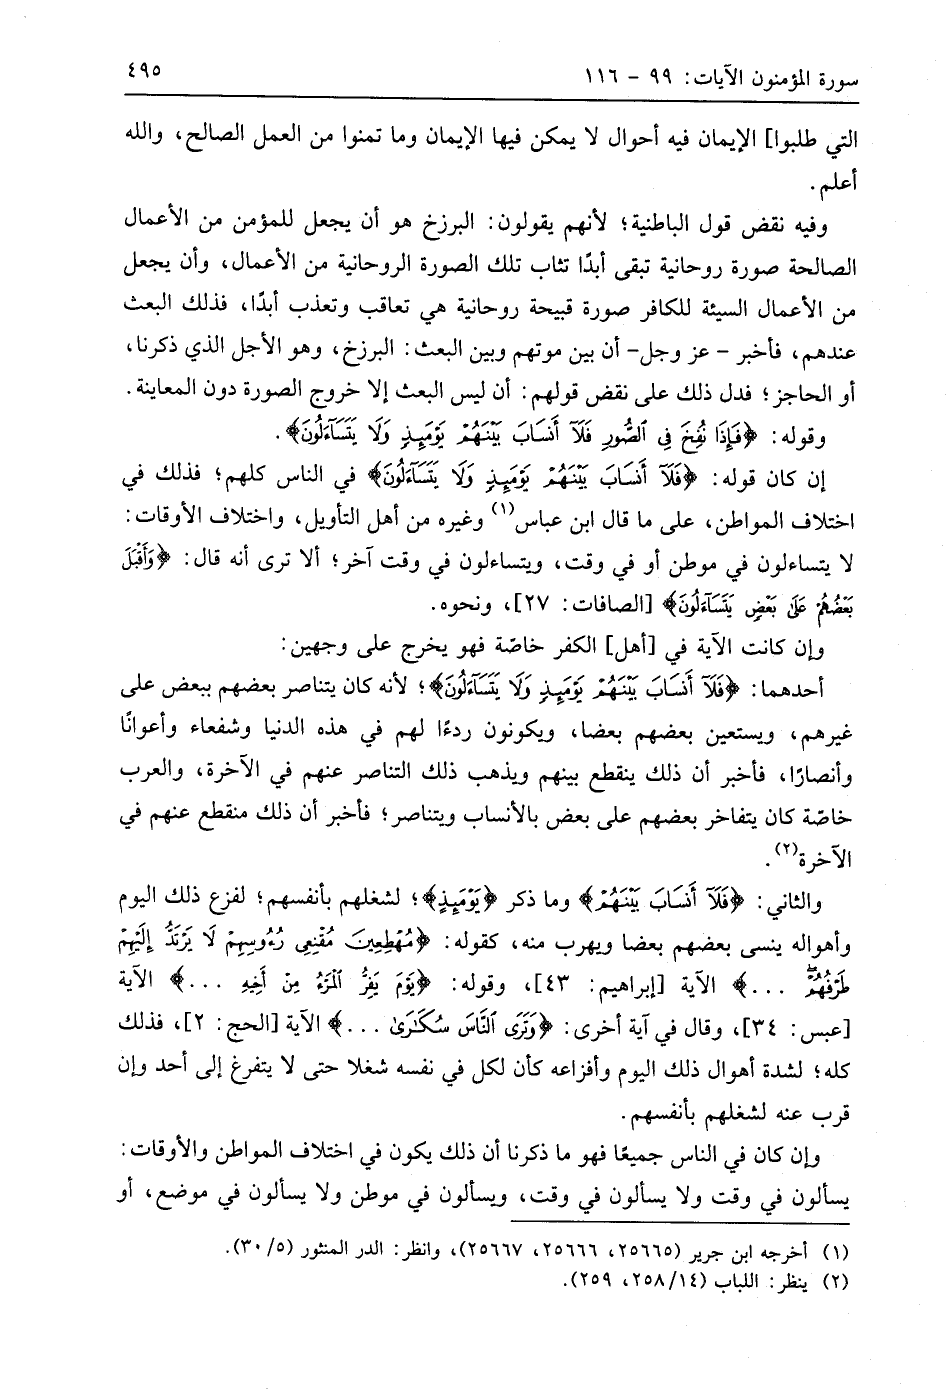 سورة المؤمنون الآيات: ٩٩ - ١١٦
٤٩٥
التي طلبوا] الإيمان فيه أحوال لا يمكن فيها الإيمان وما تمنوا من العمل الصالح، والله
أعلم.
وفيه نقض قول الباطنية؛ لأنهم يقولون: البرزخ هو أن يجعل للمؤمن من الأعمال
الصالحة صورة روحانية تبقى أبدًا تثاب تلك الصورة الروحانية من الأعمال، وأن يجعل
من الأعمال السيئة للكافر صورة قبيحة روحانية هي تعاقب وتعذب أبدًا، فذلك البعث
عندهم، فأخبر – عز وجل– أن بين موتهم وبين البعث: البرزخ، وهو الأجل الذي ذكرنا،
أو الحاجز؛ فدل ذلك على نقض قولهم: أن ليس البعث إلا خروج الصورة دون المعاينة.
وقوله: ﴿فَإِذَا نُفِخَ فِى ٱلصُّورِ فَلَآ أَنسَابَ بَيْنَهُمْ يَوْمَئِذٍ وَلَا يَتَسَآءَلُونَ﴾.
إن كان قوله: ﴿فَلَآ أَنسَابَ بَيْنَهُمْ يَوْمَئِذٍ وَلَا يَتَسَآءَلُونَ﴾ في الناس كلهم؛ فذلك في
اختلاف المواطن، على ما قال ابن عباس(١) وغيره من أهل التأويل، واختلاف الأوقات:
لا يتساءلون في موطن أو في وقت، ويتساءلون في وقت آخر؛ ألا ترى أنه قال: ﴿وَأَقْبَلَ
بَعْضُهُمْ عَلَىٰ بَعْضٍ يَتَسَآءَلُونَ﴾ [الصافات: ٢٧]، ونحوه.
وإن كانت الآية في [أهل] الكفر خاصّة فهو يخرج على وجهين:
أحدهما: ﴿فَلَآ أَنسَابَ بَيْنَهُمْ يَوْمَئِذٍ وَلَا يَتَسَآءَلُونَ﴾؛ لأنه كان يتناصر بعضهم ببعض على
غيرهم، ويستعين بعضهم بعضا، ويكونون ردءًا لهم في هذه الدنيا وشفعاء وأعوانًا
وأنصارًا، فأخبر أن ذلك ينقطع بينهم ويذهب ذلك التناصر عنهم في الآخرة، والعرب
خاصّة كان يتفاخر بعضهم على بعض بالأنساب ويتناصر؛ فأخبر أن ذلك منقطع عنهم في
الآخرة(٢).
والثاني: ﴿فَلَآ أَنسَابَ بَيْنَهُمْ﴾ وما ذكر ﴿يَوْمَئِذٍ﴾؛ لشغلهم بأنفسهم؛ لفزع ذلك اليوم
وأهواله ينسى بعضهم بعضا ويهرب منه، كقوله: ﴿مُهْطِعِينَ مُقْنِعِى رُءُوسِهِمْ لَا يَرْتَدُّ إِلَيْهِمْ
طَرْفُهُمْ ...﴾ الآية [إبراهيم: ٤٣]، وقوله: ﴿يَوْمَ يَفِرُّ ٱلْمَرْءُ مِنْ أَخِيهِ ...﴾ الآية
[عبس: ٣٤]، وقال في آية أخرى: ﴿وَتَرَى ٱلنَّاسَ سُكَٰرَىٰ ...﴾ الآية [الحج: ٢]، فذلك
كله؛ لشدة أهوال ذلك اليوم وأفزاعه كأن لكل في نفسه شغلا حتى لا يتفرغ إلى أحد وإن
قرب عنه لشغلهم بأنفسهم.
وإن كان في الناس جميعًا فهو ما ذكرنا أن ذلك يكون في اختلاف المواطن والأوقات:
يسألون في وقت ولا يسألون في وقت، ويسألون في موطن ولا يسألون في موضع، أو
(١) أخرجه ابن جرير (٢٥٦٦٥، ٢٥٦٦٦، ٢٥٦٦٧)، وانظر: الدر المنثور (٣٠/٥).
(٢) ينظر: اللباب (٢٥٨/١٤، ٢٥٩).